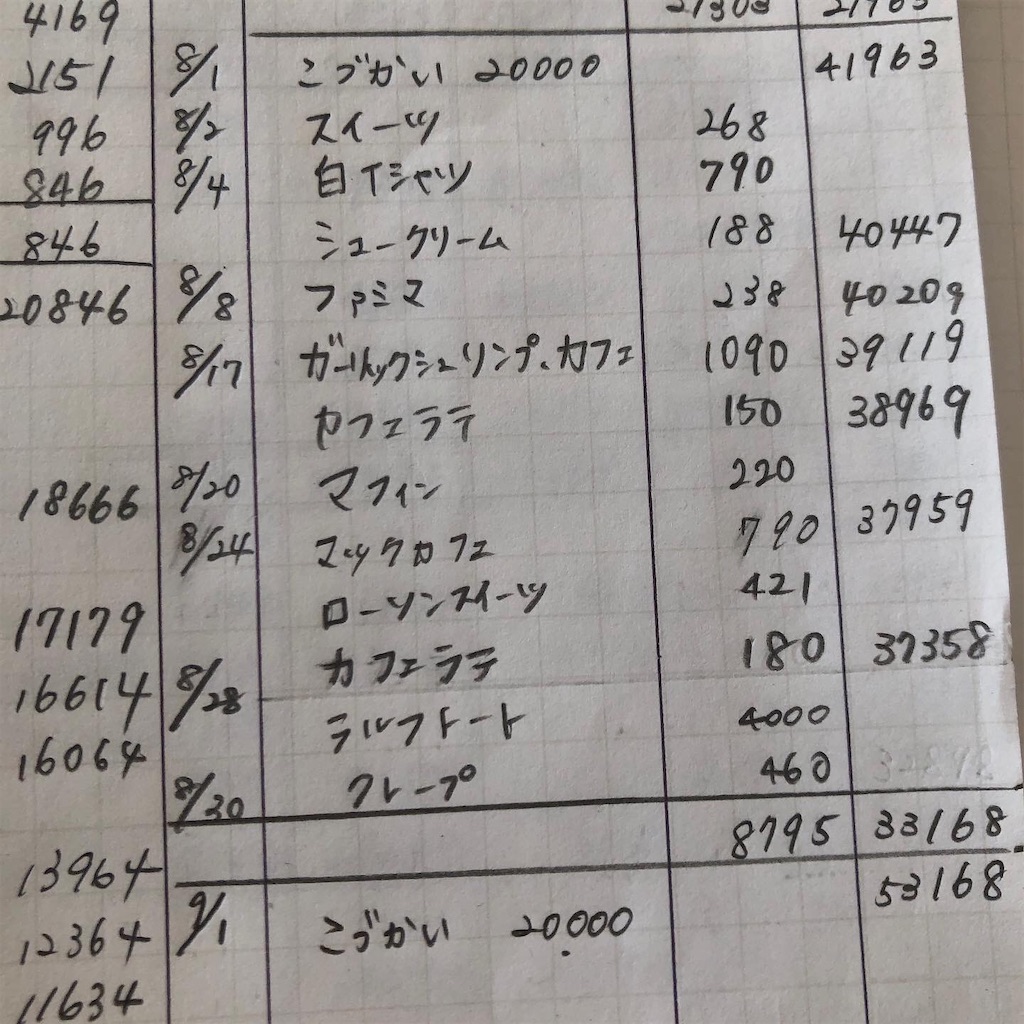 4169
2151 8/1 こづかい 20000 41963
996 8/2 スイーツ 268
846 8/4 白Tシャツ 790
846 シュークリーム 188 40447
20846 8/8 ファミマ 238 40209
8/17 ガーリックシュリンプ、カフェ 1090 39119
カフェラテ 150 38969
18666 8/20 マフィン 220
8/24 マックカフェ 790 37959
17179 ローソンスイーツ 421
16614 8/28 カフェラテ 180 37358
16064 ラルフトート 4000
8/30 クレープ 460
8795 33168
13964 53168
12364 9/1 こづかい 20000
11634